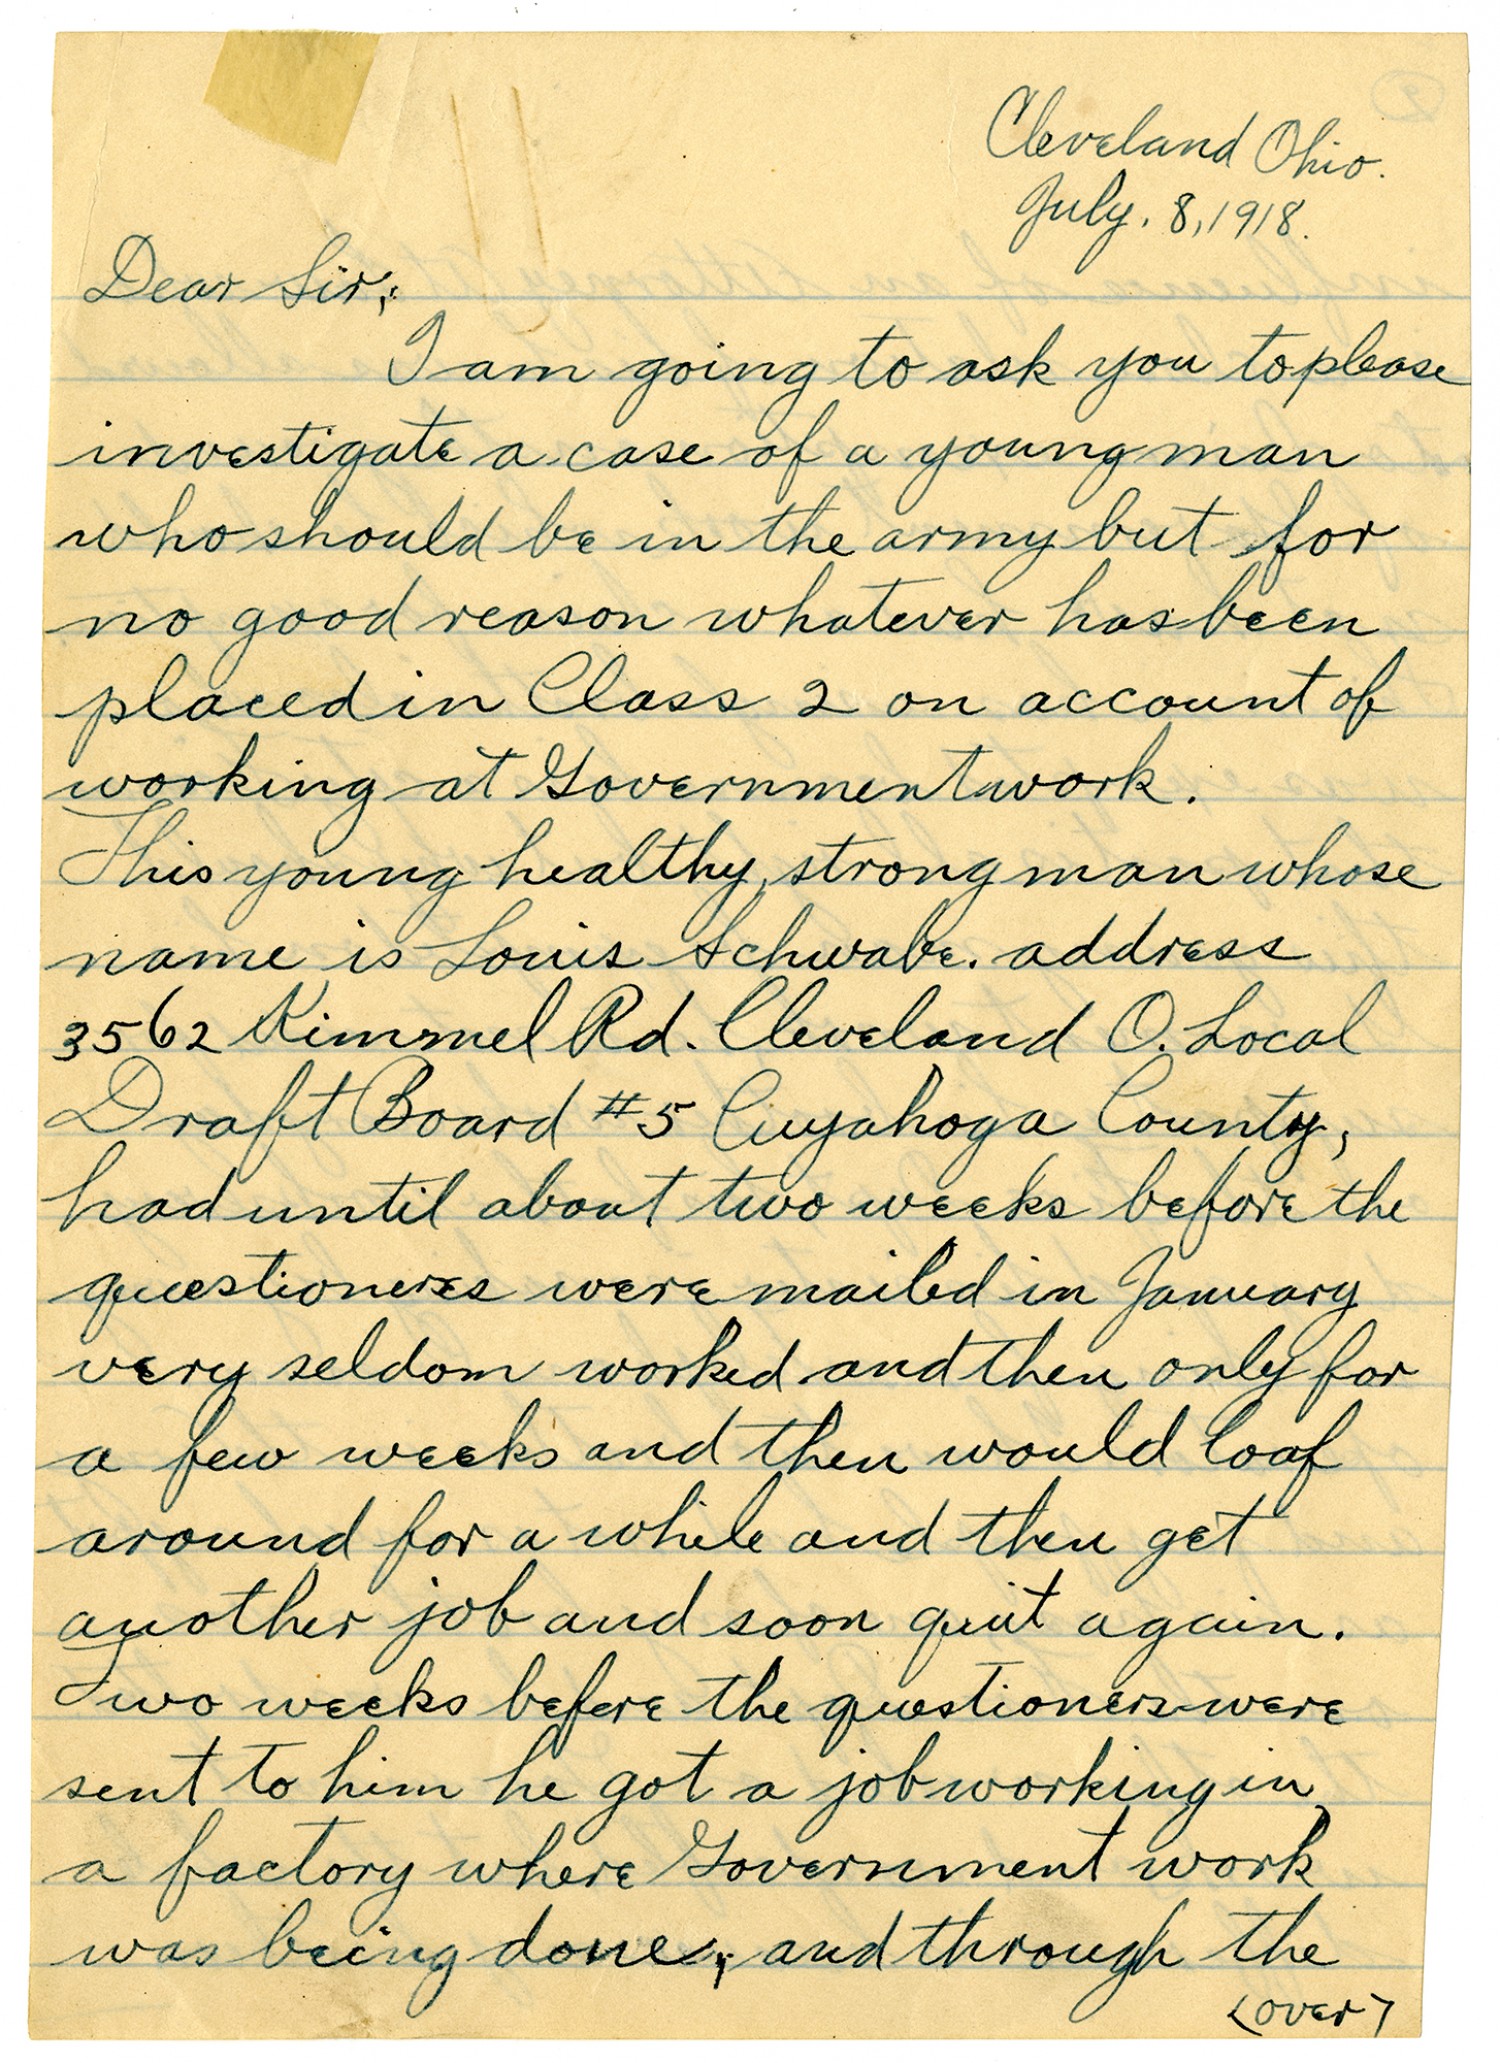 Cleveland Ohio.
July. 8, 1918.
Dear Sir;
I am going to ask you to please
investigate a case of a young man
who should be in the army but for
no good reason whatever has been
placed in Class 2 on account of
working at Government work.
This young healthy, strong man whose
name is Louis Schwabe. address
3562 Kimmel Rd. Cleveland O. Local
Draft Board #5 Cuyahoga County,
had until about two weeks before the
questioneres were mailed in January
very seldom worked and then only for
a few weeks and then would loaf
around for a while and then get
another job and soon quit again.
Two weeks before the questioners were
sent to him he got a job working in
a factory where Government work
was being done, and through the
(over)